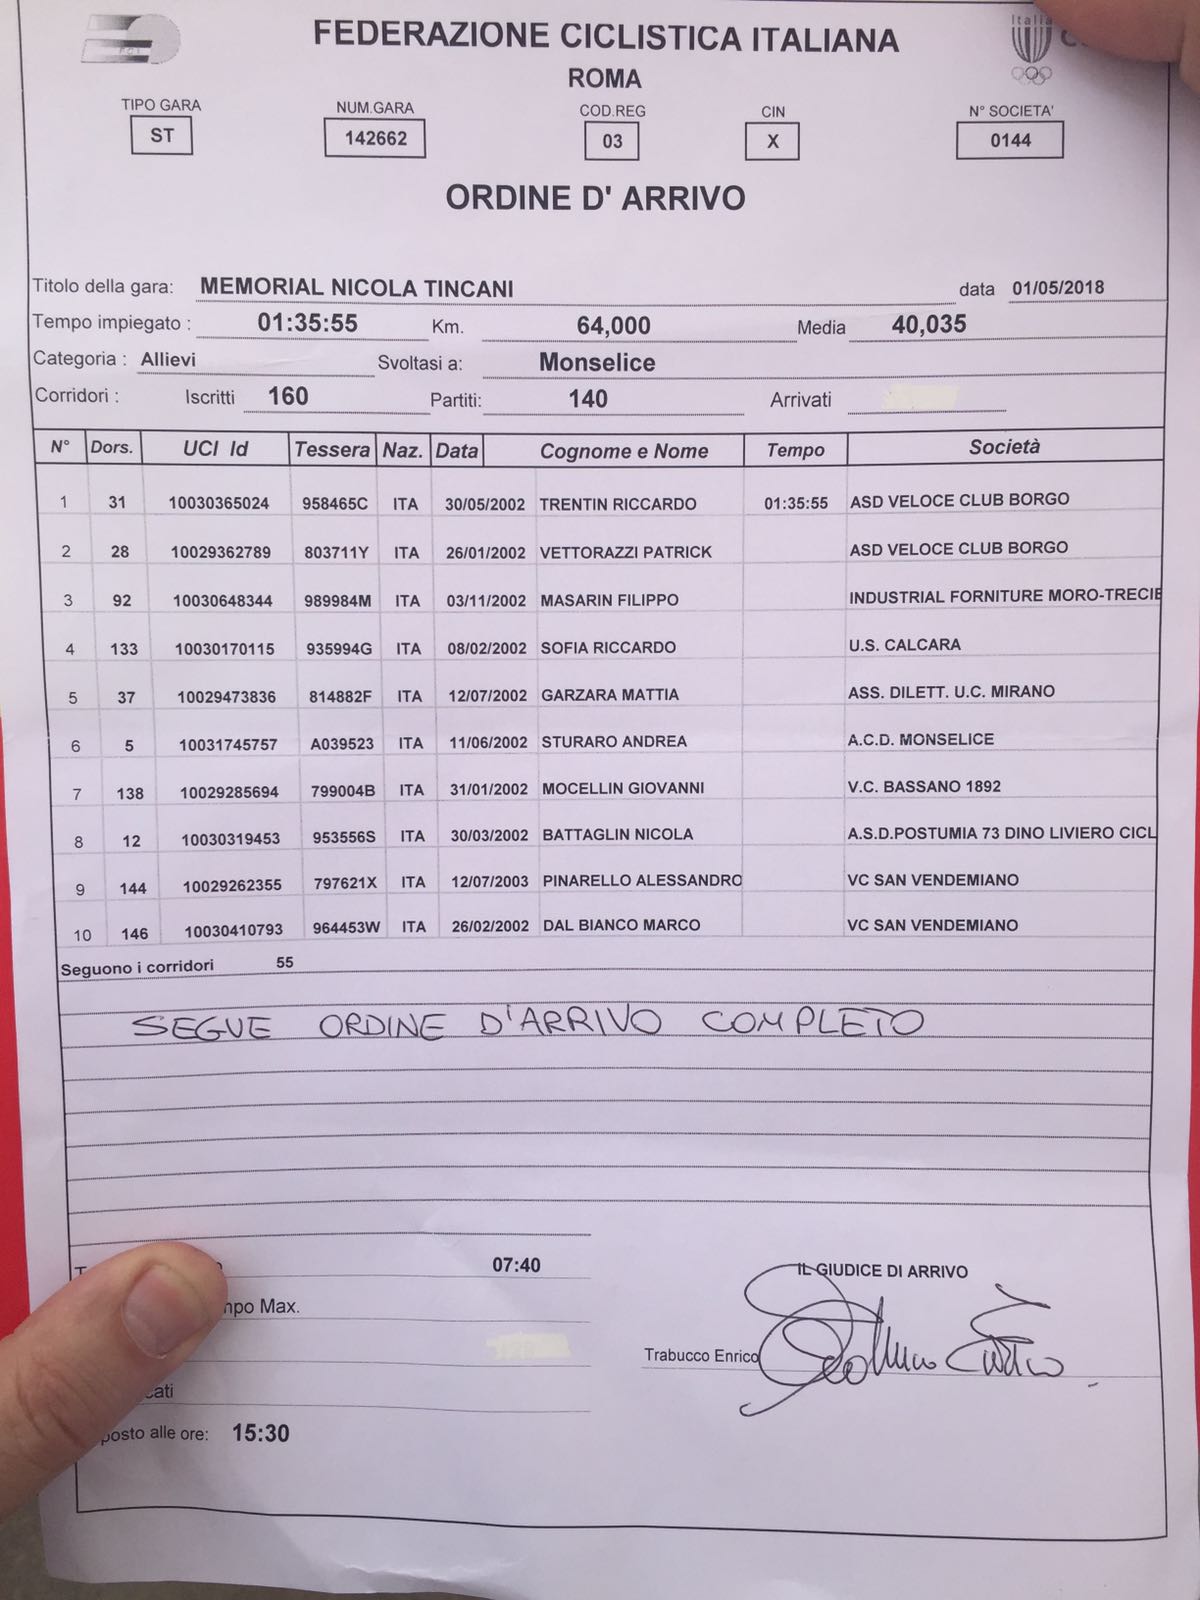 FEDERAZIONE CICLISTICA ITALIANA
ROMA
TIPO GARA NUM.GARA COD.REG CIN N° SOCIETA'
ST 142662 03 X 0144
Italia
ORDINE D' ARRIVO
Titolo della gara: MEMORIAL NICOLA TINCANI data 01/05/2018
Tempo impiegato : 01:35:55 Km. 64,000 Media 40,035
Categoria : Allievi Svoltasi a: Monselice
Corridori : Iscritti 160 Partiti: 140 Arrivati
N° Dors. UCI Id Tessera Naz. Data Cognome e Nome Tempo Società
1 31 10030365024 958465C ITA 30/05/2002 TRENTIN RICCARDO 01:35:55 ASD VELOCE CLUB BORGO
2 28 10029362789 803711Y ITA 26/01/2002 VETTORAZZI PATRICK ASD VELOCE CLUB BORGO
3 92 10030648344 989984M ITA 03/11/2002 MASARIN FILIPPO INDUSTRIAL FORNITURE MORO-TRECIE
4 133 10030170115 935994G ITA 08/02/2002 SOFIA RICCARDO U.S. CALCARA
5 37 10029473836 814882F ITA 12/07/2002 GARZARA MATTIA ASS. DILETT. U.C. MIRANO
6 5 10031745757 A039523 ITA 11/06/2002 STURARO ANDREA A.C.D. MONSELICE
7 138 10029285694 799004B ITA 31/01/2002 MOCELLIN GIOVANNI V.C. BASSANO 1892
8 12 10030319453 953556S ITA 30/03/2002 BATTAGLIN NICOLA A.S.D.POSTUMIA 73 DINO LIVIERO CICL
9 144 10029262355 797621X ITA 12/07/2003 PINARELLO ALESSANDRO VC SAN VENDEMIANO
10 146 10030410793 964453W ITA 26/02/2002 DAL BIANCO MARCO VC SAN VENDEMIANO
Seguono i corridori 55
SEGUE ORDINE D'ARRIVO COMPLETO
07:40
IL GIUDICE DI ARRIVO
mpo Max.
Trabucco Enrico
cati
posto alle ore: 15:30